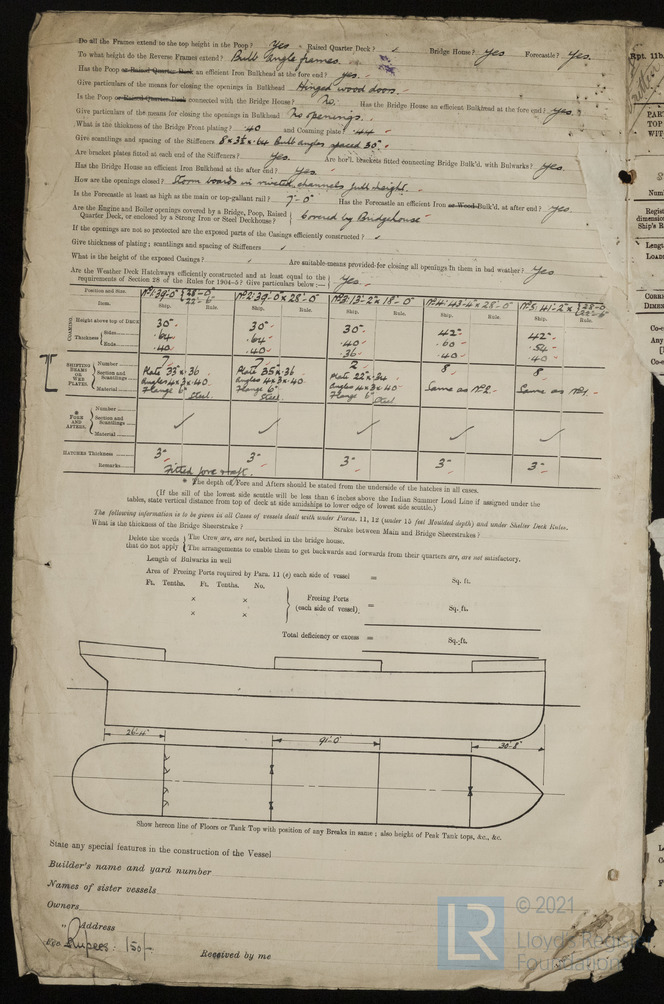 Do all the Frames extend to the top height in the Poop? Yes Raised Quarter Deck? Bridge House? Yes Forecastle? Yes.
To what height do the Reverse Frames extend? Bulb angle frames.
Has the Poop or Raised Quarter Deck an efficient Iron Bulkhead at the fore end? yes.
Give particulars of the means for closing the openings in Bulkhead Hinged wood doors.
Is the Poop or Raised Quarter Deck connected with the Bridge House? No. Has the Bridge House an efficient Bulkhead at the fore end? yes.
Give particulars of the means for closing the openings in Bulkhead No openings.
What is the thickness of the Bridge Front plating? .40 and Coaming plate? .44
Give scantlings and spacing of the Stiffeners 8 x 3½ x .44 Bulb angles spaced 30"
Are bracket plates fitted at each end of the Stiffeners? Yes. Are hor'l. brackets fitted connecting Bridge Bulk'd. with Bulwarks? Yes.
Has the Bridge House an efficient Iron Bulkhead at the after end? Yes.
How are the openings closed? Storm boards in riveted channels full height.
Is the Forecastle at least as high as the main or top-gallant rail? 7'-0" Has the Forecastle an efficient Iron or Wood Bulk'd. at after end? yes.
Are the Engine and Boiler openings covered by a Bridge, Poop, Raised Quarter Deck, or enclosed by a Strong Iron or Steel Deckhouse? Covered by Bridgehouse
If the openings are not so protected are the exposed parts of the Casings efficiently constructed?
Give thickness of plating; scantlings and spacing of Stiffeners
What is the height of the exposed Casings? Are suitable means provided for closing all openings in them in bad weather? Yes
Are the Weather Deck Hatchways efficiently constructed and at least equal to the requirements of Section 28 of the Rules for 1904-5? Give particulars below:— Yes.
Position and Size. No 1: 39'-0" x 28'-0" 22'-6" No 2: 39'-0 x 28'-0" No 3: 13'-2" x 18'-0" No 4: 43'-4" x 28'-0" No 5: 41'-2" x 28'-0 22'-6"
Item. Ship. Rule. Ship. Rule. Ship. Rule. Ship. Rule. Ship. Rule.
COAMING. Height above top of DECK 30" 30" 30" 42" 42"
Thickness Sides .64 .64 .40 .60 .54
Ends .40 .40 .36 .40 .40
SHIFTING BEAMS OR WEB PLATES. Number 7 7 2 8 8
Section and Scantlings Plate 35" x .36 Plate 35 x .36 Plate 22" x .34 Same as No 2 Same as No 1
Angles 4 x 3 x .40 Angles 4 x 3 x .40 Angles 4 x 3 x .40
Material Flange 6" Steel Flange 6" Steel Flange 6" Steel
* FORE AND AFTERS. Number
Section and Scantlings
Material
HATCHES Thickness 3" 3" 3" 3" 3"
Remarks Fitted fore & aft.
* The depth of Fore and Afters should be stated from the underside of the hatches in all cases.
(If the sill of the lowest side scuttle will be less than 6 inches above the Indian Summer Load Line if assigned under the
tables, state vertical distance from top of deck at side amidships to lower edge of lowest side scuttle.)
The following information is to be given in all Cases of vessels dealt with under Paras. 11, 12 (under 15 feet Moulded depth) and under Shelter Deck Rules.
What is the thickness of the Bridge Sheerstrake? Strake between Main and Bridge Sheerstrakes?
Delete the words that do not apply The Crew are, are not, berthed in the bridge house.
The arrangements to enable them to get backwards and forwards from their quarters are, are not satisfactory.
Length of Bulwarks in well
Area of Freeing Ports required by Para. 11 (e) each side of vessel = Sq. ft.
Ft. Tenths. Ft. Tenths. No.
× × Freeing Ports
(each side of vessel). = Sq. ft.
× ×
Total deficiency or excess = Sq. ft.
26'-4" 91'-0" 30'-8"
Show hereon line of Floors or Tank Top with position of any Breaks in same; also height of Peak Tank tops, &c., &c.
State any special features in the construction of the Vessel
Builder's name and yard number
Names of sister vessels
Owners
„ Address
Fee Rupees: 150/-
Received by me
Rpt. 11b.
LR
© 2021
Lloyd's Register
Foundation